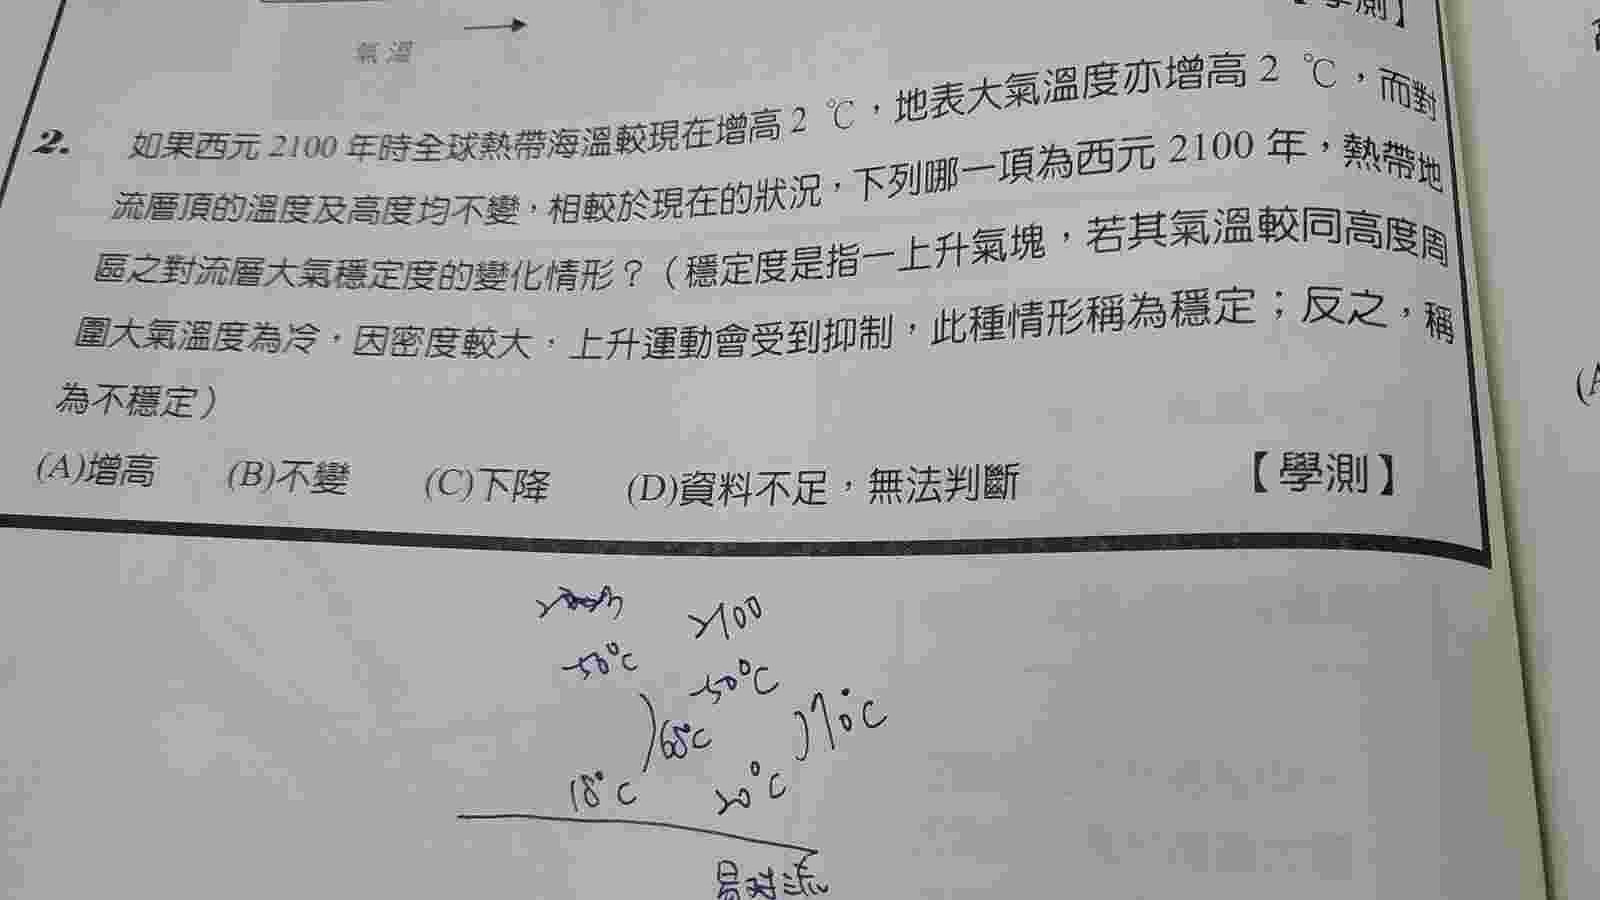 【學測】
氣溫
2. 如果西元 2100 年時全球熱帶海溫較現在增高 2 ℃，地表大氣溫度亦增高 2 ℃，而對
流層頂的溫度及高度均不變，相較於現在的狀況，下列哪一項為西元 2100 年，熱帶地
區之對流層大氣穩定度的變化情形？（穩定度是指一上升氣塊，若其氣溫較同高度周
圍大氣溫度為冷，因密度較大，上升運動會受到抑制，此種情形稱為穩定；反之，稱
為不穩定）
(A)增高 (B)不變 (C)下降 (D)資料不足，無法判斷 【學測】
2100
-50°C -50°C
68°C 70°C
18°C 20°C
易對流
(A